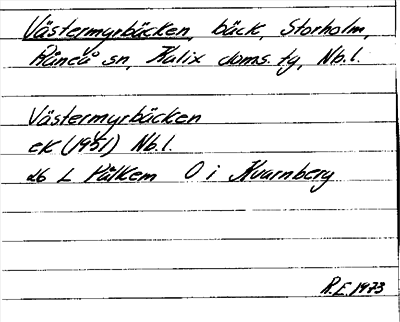 Västermyrbäcken, bäck, Storholm,
Råneå sn, Kalix doms. tg, Nb.l.
Västermyrbäcken
eK (1951) Nb.l.
26 L Hålkem O i Kvarnberg
R.E. 1973